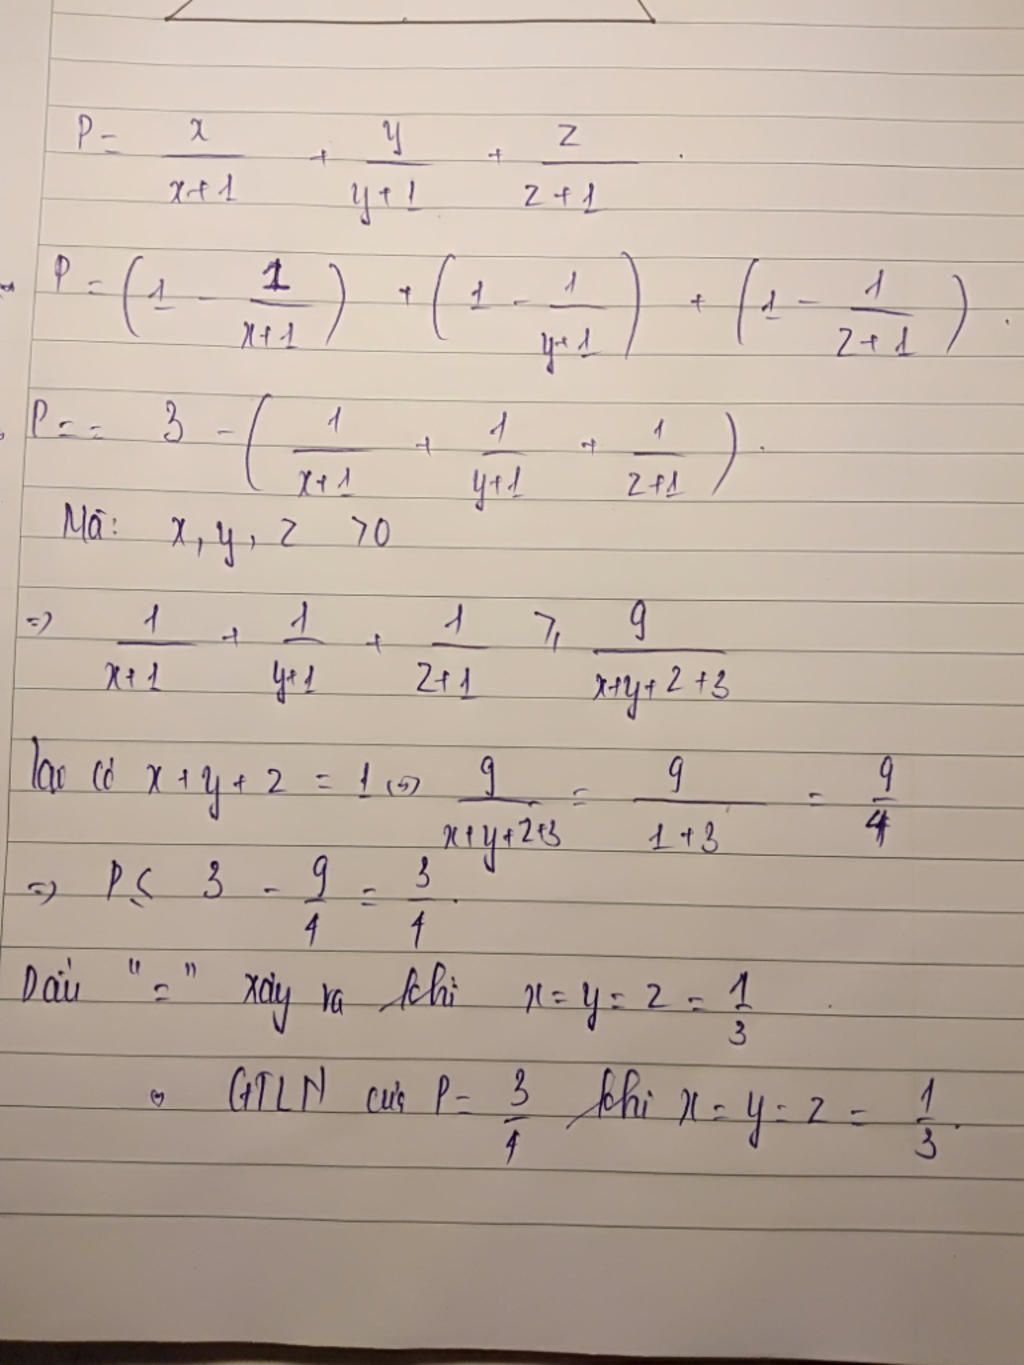 P = x/(x+1) + y/(y+1) + z/(z+1) .
P = (1 - 1/(x+1)) + (1 - 1/(y+1)) + (1 - 1/(z+1)) .
P = = 3 - (1/(x+1) + 1/(y+1) + 1/(z+1)) .
Mà: x, y, z > 0
=> 1/(x+1) + 1/(y+1) + 1/(z+1) ≥ 9/(x+y+z+3)
lại có x + y + z = 1 (=) 9/(x+y+z+3) = 9/(1+3) = 9/4
=> P ≤ 3 - 9/4 = 3/4 .
Dấu "=" xảy ra khi x = y = z = 1/3 .
GTLN của P = 3/4 khi x = y = z = 1/3 .